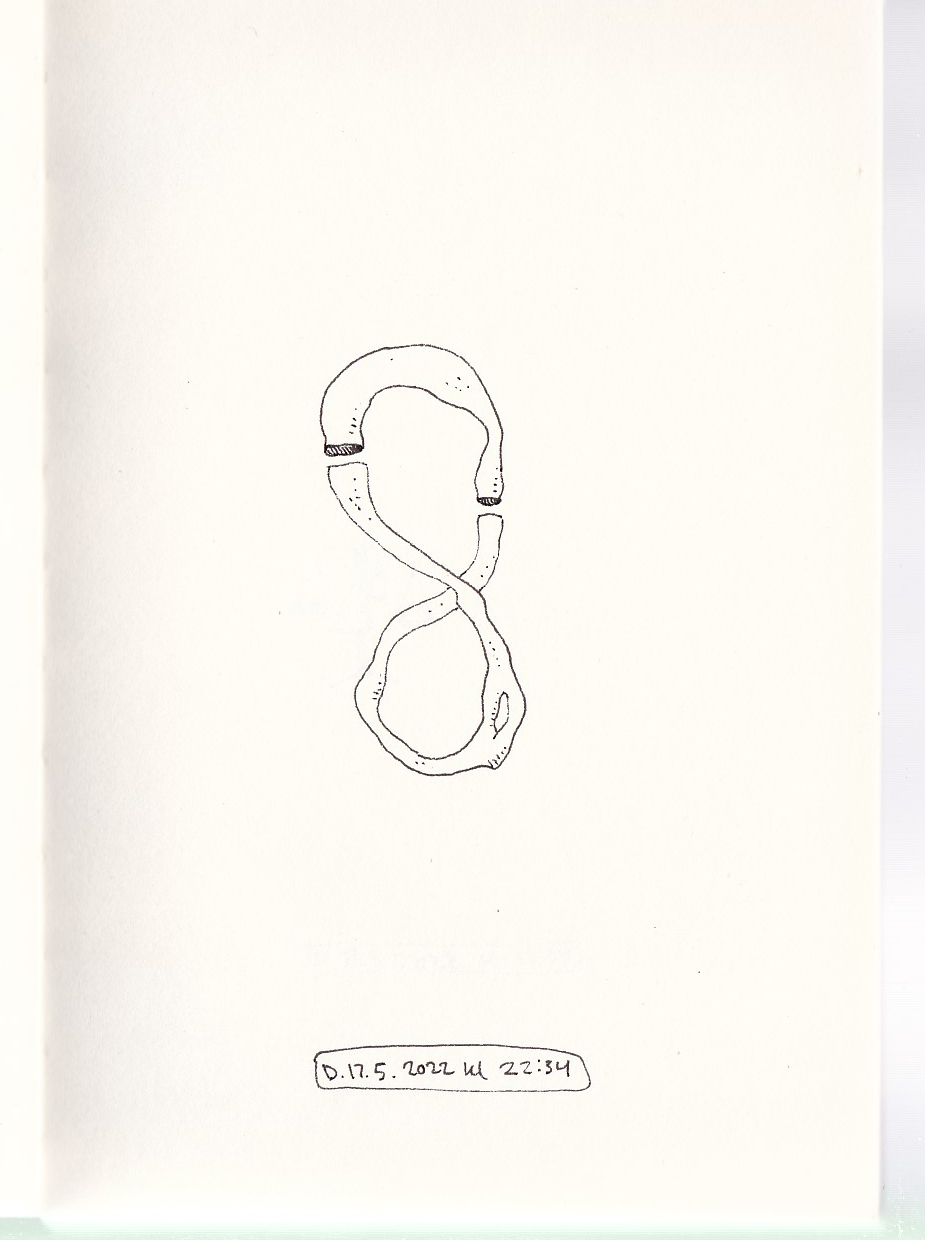 D.17.5.2022 kl 22:34